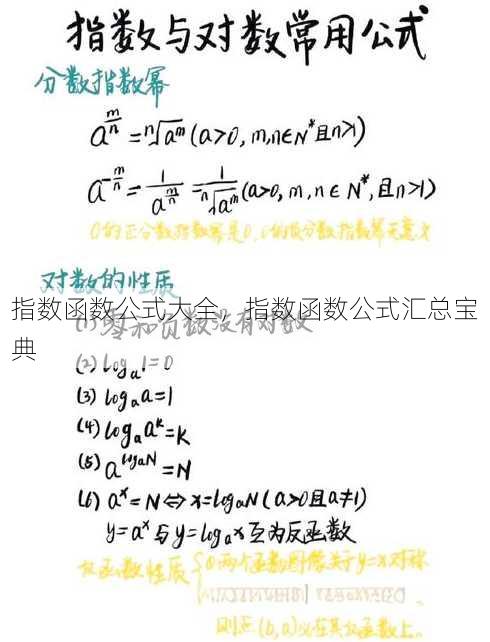 指数与对数常用公式
分数指数幂
a^{\frac{m}{n}} = \sqrt[n]{a^m} (a>0, m,n∈N*且n>1)
a^{-\frac{m}{n}} = \frac{1}{a^{\frac{m}{n}}} = \frac{1}{\sqrt[n]{a^m}} (a>0, m, n ∈ N*, 且n>1)
0的正分数指数幂是0, 0的负分数指数幂无意义
对数的性质
指数函数公式大全，指数函数公式汇总宝
典
(1) 零和负数没有对数
(2) log_a 1=0
(3) log_a a=1
(4) log_a a^k=k
(5) a^{log_a N}=N
(6) a^x=N⇔x=log_a N (a>0且a≠1)
y=a^x与y=log_a x互为反函数
反函数性质 ① 两个函数图像关于y=x对称
则点(b,a)必在其反函数上。